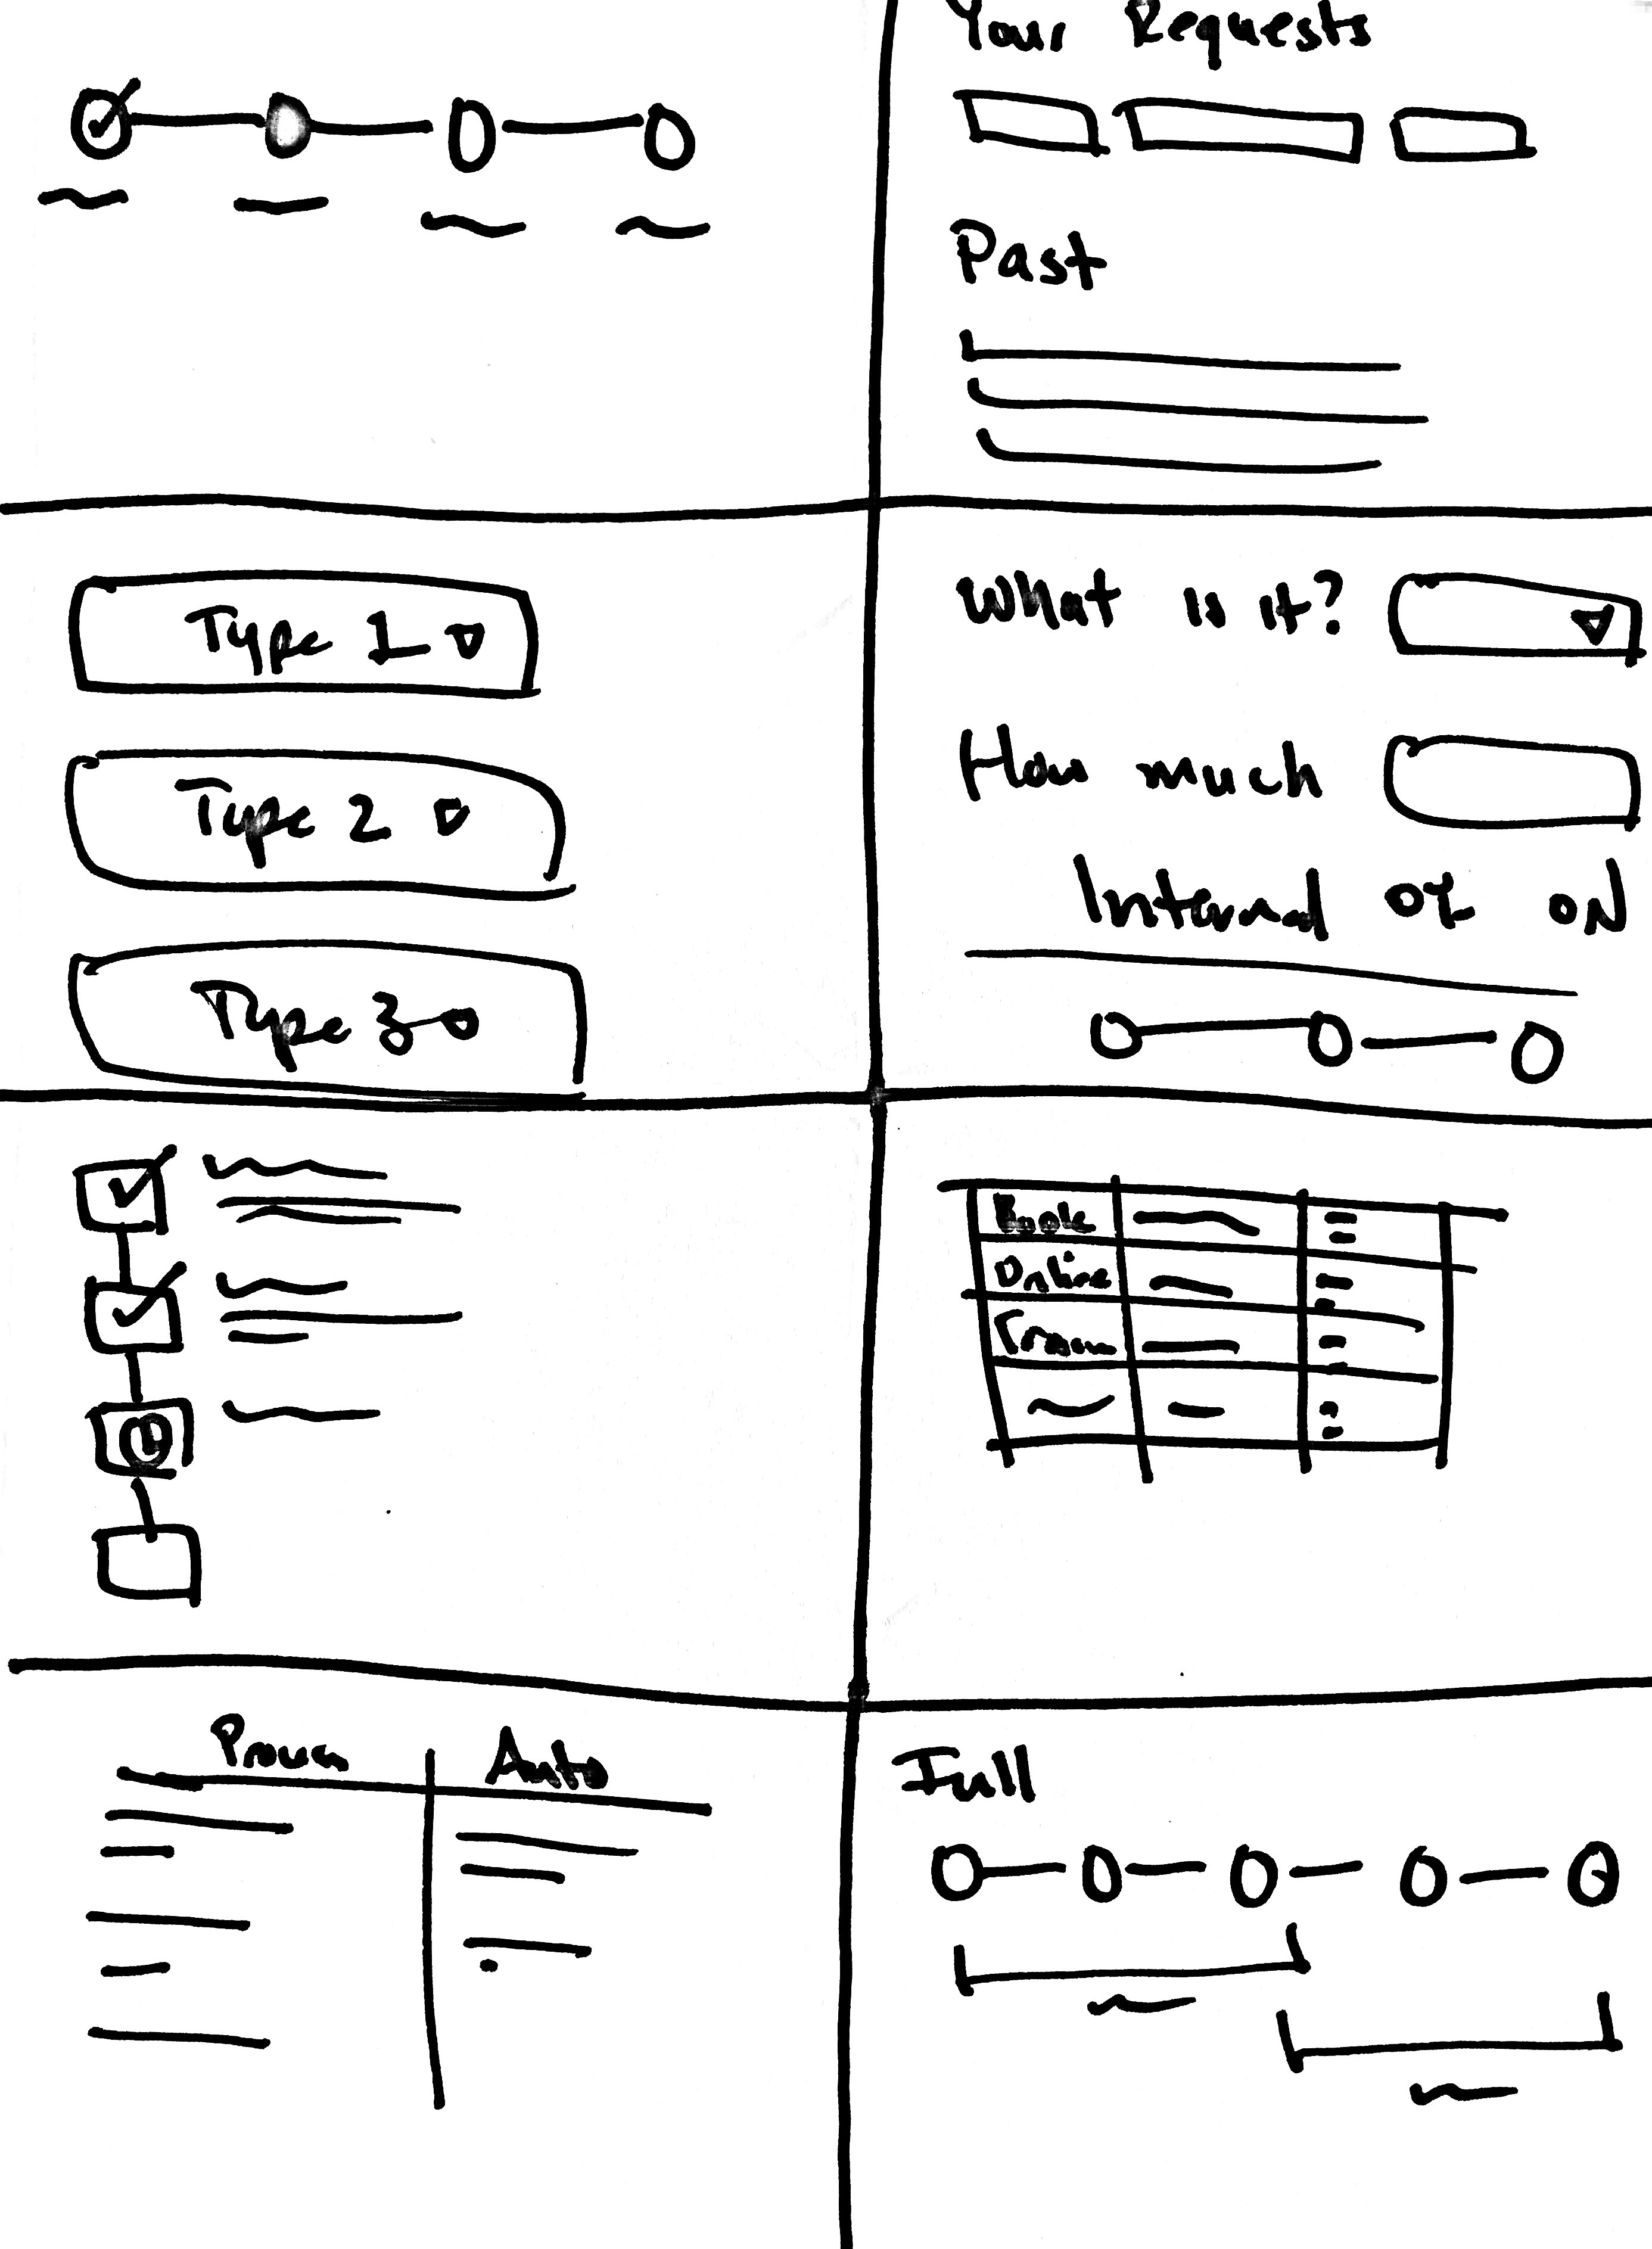 Your Requests
Past
Type 1
Type 2
Type 3
What is it?
How much
Internal or ON
Book
Online
Auto
Full